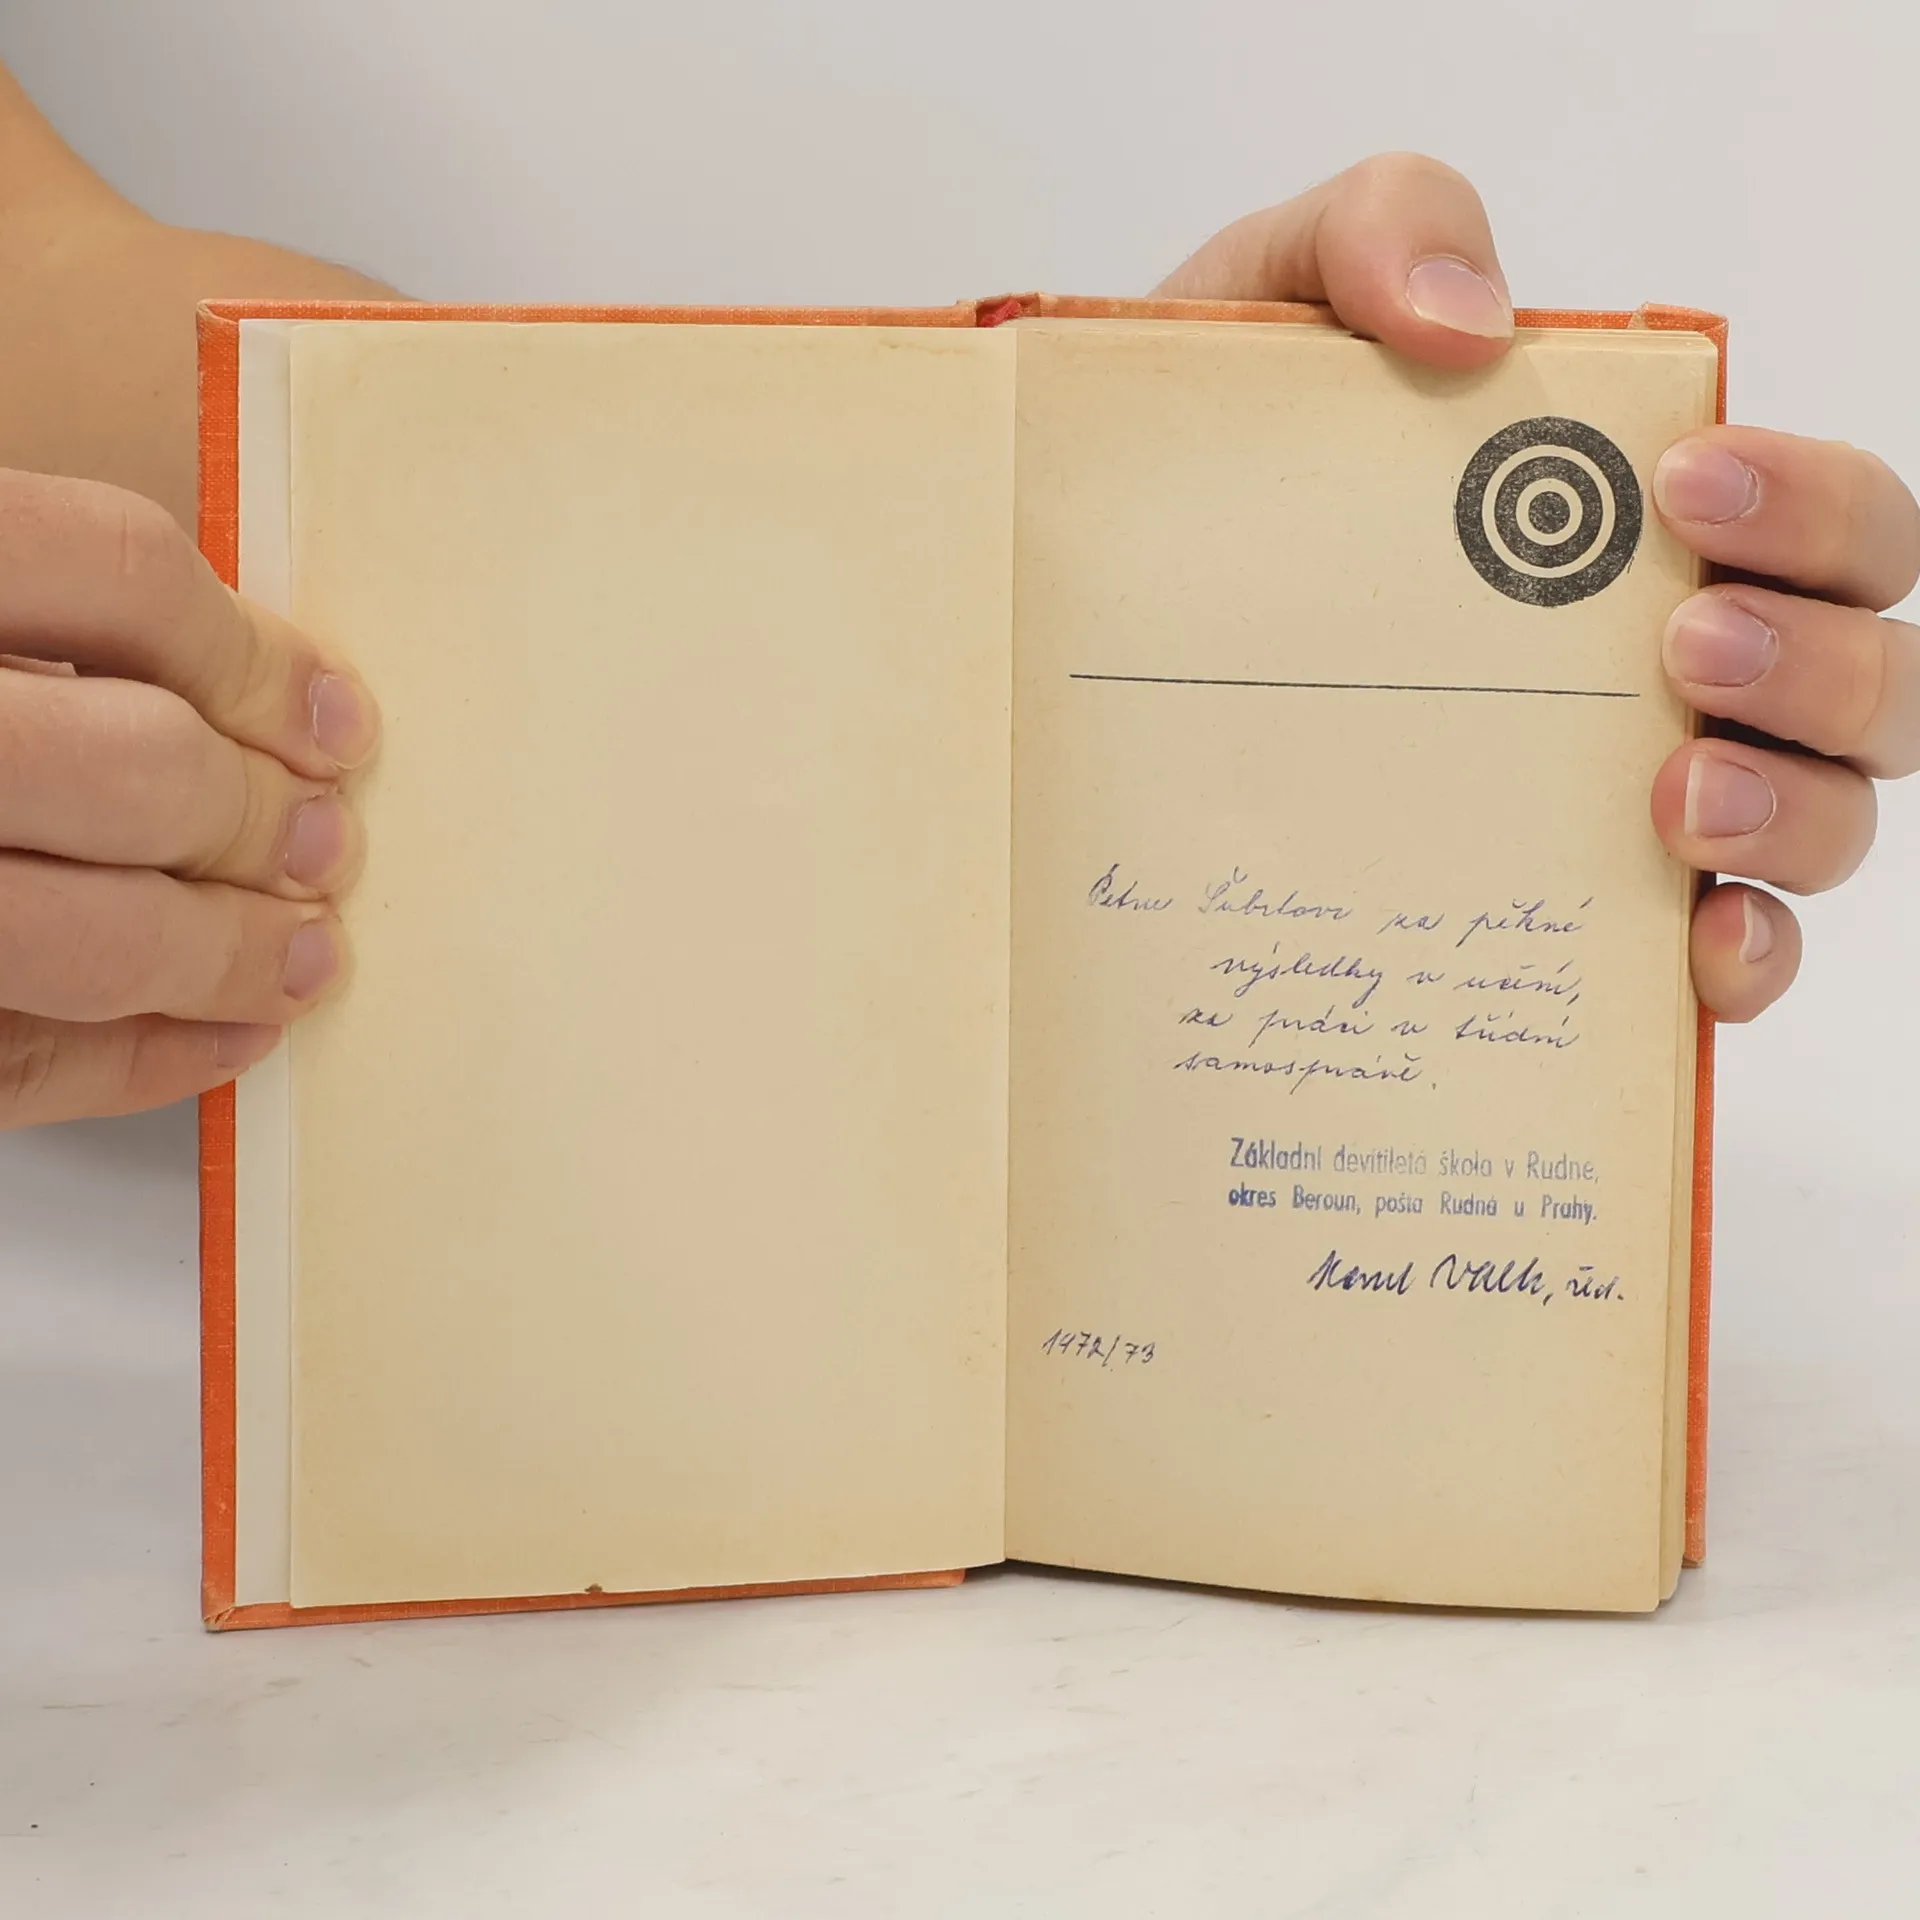 Petru Šubrtovi za pěkné
výsledky v učení,
za práci v třídní
samosprávě.
Základní devítiletá škola v Rudné,
okres Beroun, pošta Rudná u Prahy.
Karel Valh, řed.
1972/73